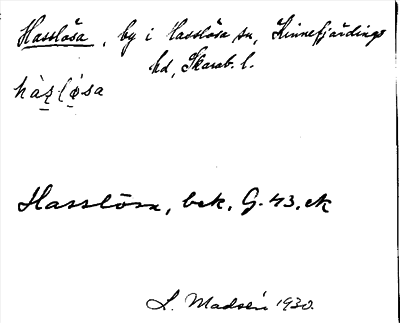 Hasslösa, by i Hasslösa sn, Kinnefjärdings
hd, Skarab. l.
hàʐløsa
Hasslösa, bek. G. 43. ek
L. Madsén 1930.